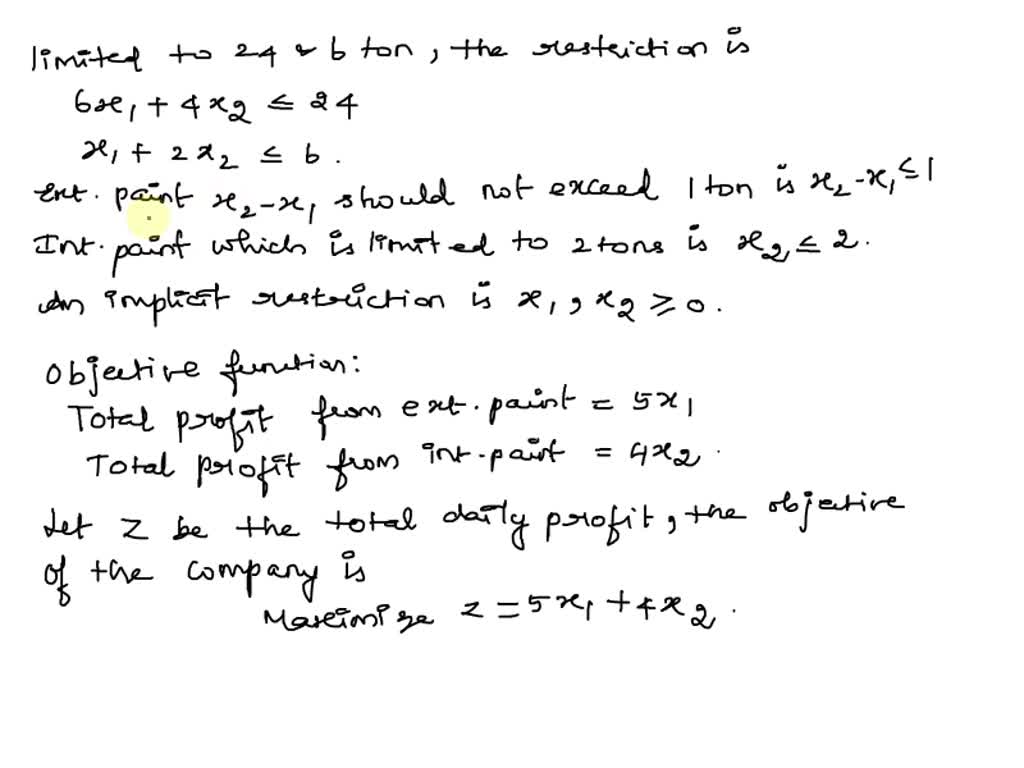 limited to 24 & 6 ton, the restriction is
6x₁ + 4x₂ ≤ 24
x₁ + 2x₂ ≤ 6.
Ext. paint x₂-x₁ should not exceed 1 ton is x₂-x₁ ≤ 1
Int. paint which is limited to 2 tons is x₂ ≤ 2.
An implicit restriction is x₁, x₂ ≥ 0.
Objective function:
Total profit from ext. paint = 5x₁
Total profit from int. paint = 4x₂.
Let Z be the total daily profit, the objective
of the company is
Maximize z = 5x₁ + 4x₂.